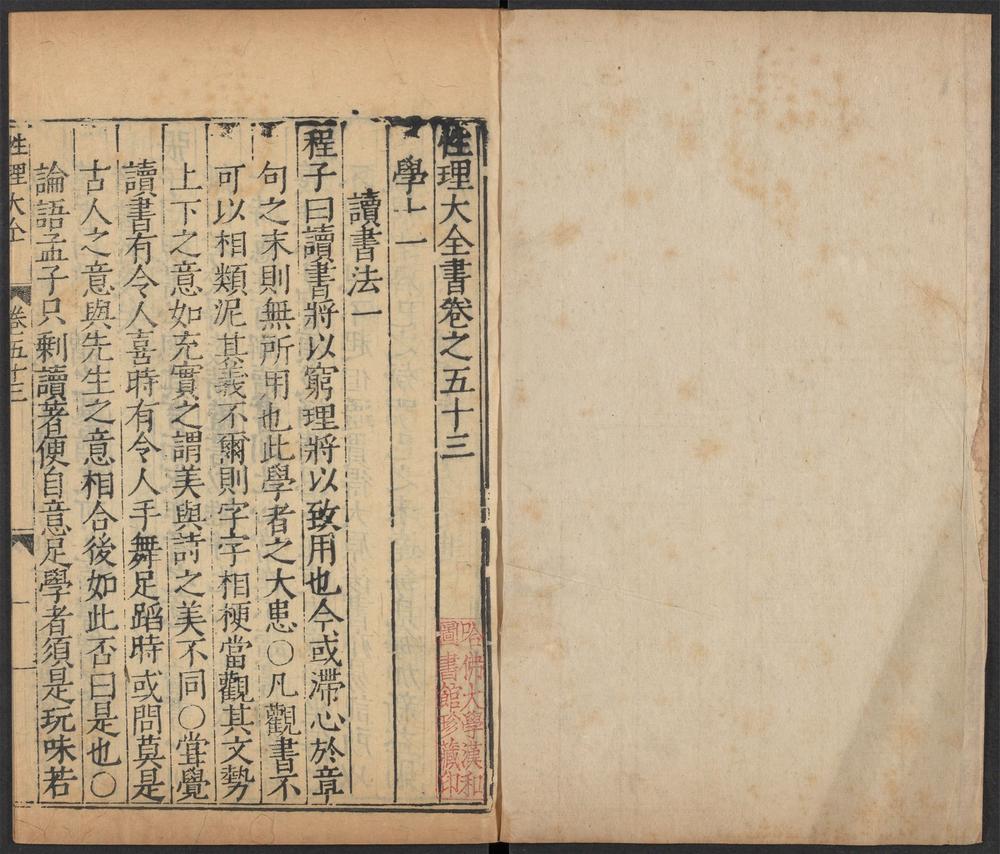 性理大全書卷之五十三
學十一
讀書法一
程子曰讀書將以窮理將以致用也今或滯心於章
句之末則無所用也此學者之大患○凡觀書不
可以相類泥其義不爾則字字相梗當觀其文勢
上下之意如充實之謂美與詩之美不同○嘗覺
讀書有令人喜時有令人手舞足蹈時或問莫是
古人之意與先生之意相合後如此否曰是也○
論語孟子只剩讀著便自意足學者須是玩味若
性理大全 卷五十三 一
哈佛大學漢和
圖書館珍藏印